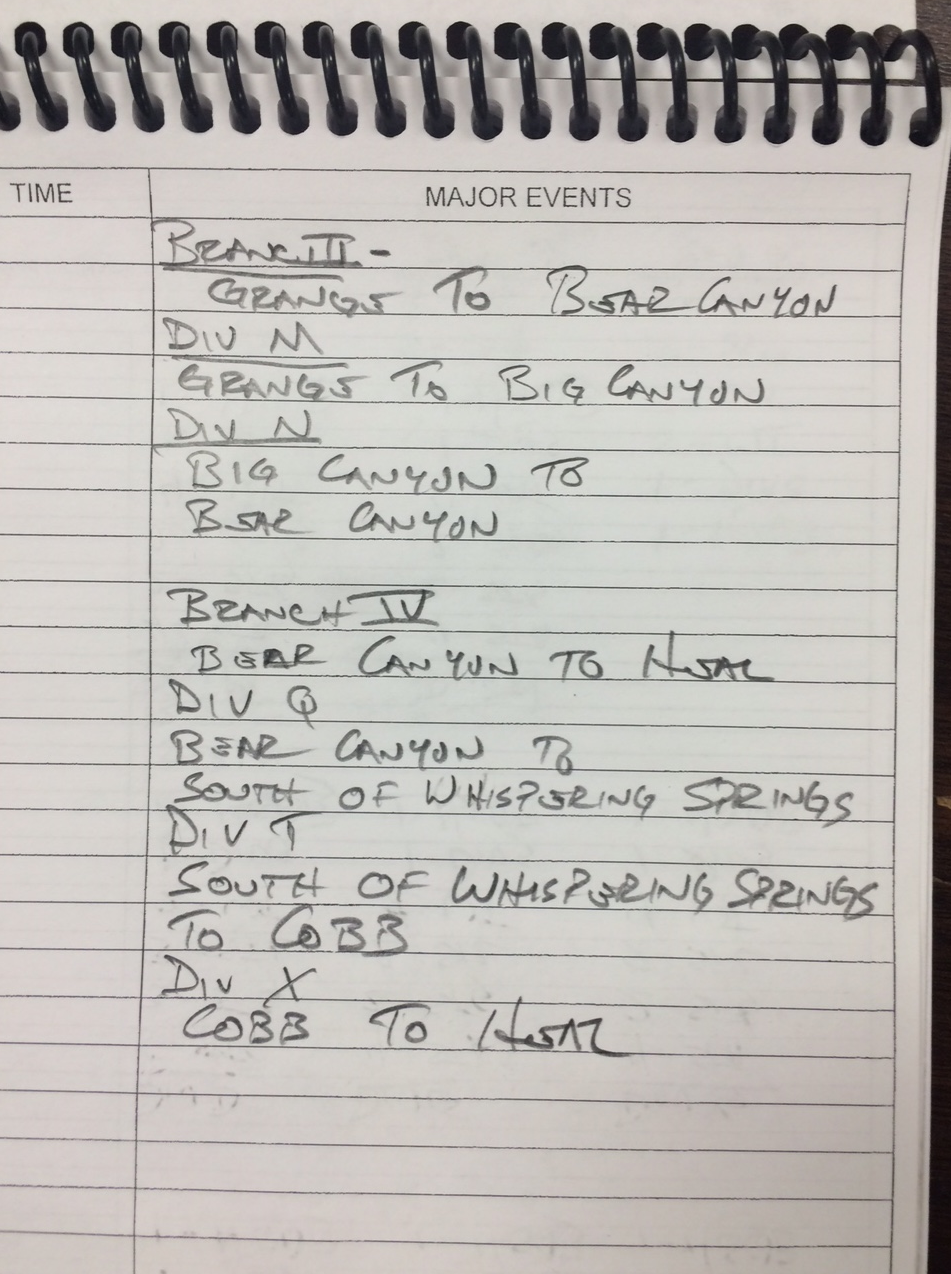 TIME MAJOR EVENTS
BRANC III -
GRANGE TO BEAR CANYON
DIV M
GRANGE TO BIG CANYON
DIV N
BIG CANYON TO
BEAR CANYON
BRANCH IV
BEAR CANYON TO
DIV Q
BEAR CANYON TO
SOUTH OF WHISPERING SPRINGS
DIV T
SOUTH OF WHISPERING SPRINGS
TO COBB
DIV X
COBB TO